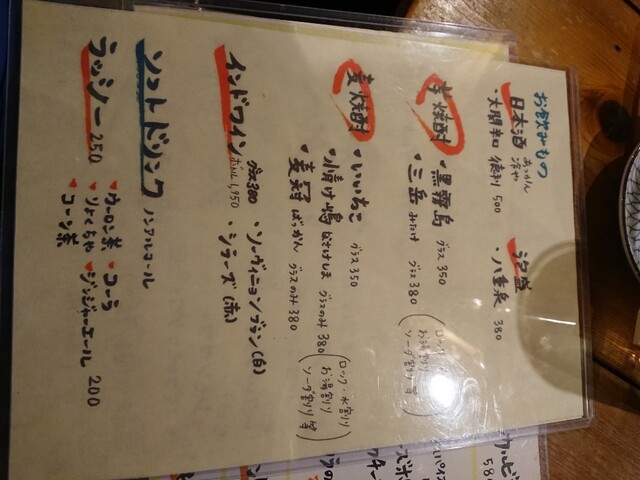 お飲みもの
日本酒 あつかん 冷や
・大関辛口 徳利 500
泡盛
・八重泉 380
芋焼酎
・黒霧島 グラス 350
・三岳 みたけ グラス 380
(ロック・水割り
お湯割り
ソーダ割り 等)
麦焼酎
・いいちこ グラス 350
・小青け嶋 おさけしま グラスのみ 380
・麦冠 ばっかん グラスのみ 380
(ロック・水割り
お湯割り
ソーダ割り 等)
インドワイン グラス 300 ボトル 1,950
・ソーヴィニョンブラン(白)
・シラーズ(赤)
ソフトドリンク ノンアルコール
ラッシー 250
ウーロン茶
コーラ
りょくちゃ
ジンジャーエール 200
コーン茶